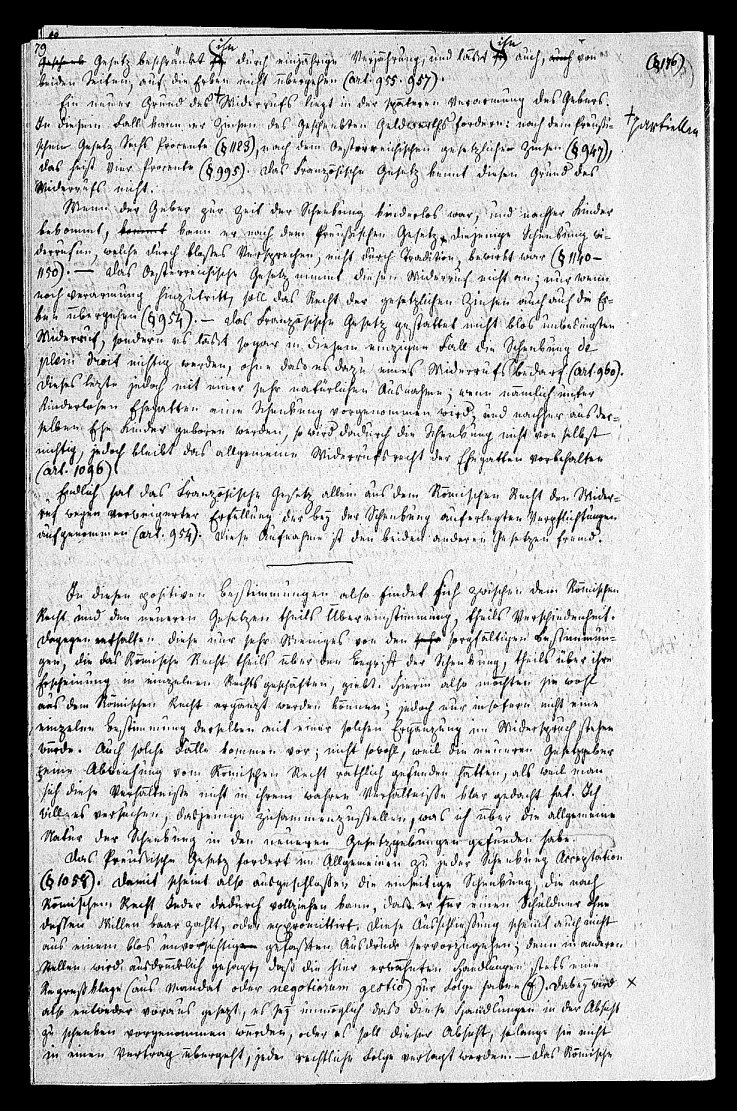 79
ihn ihn
Gesetz beschränkt durch einjährige Verjährung, und läßt auch, von (§176)
beiden Seiten, auf die Erben nicht übergehen (art. 955. 957).
Ein neuer Grund des Widerrufs liegt in der späteren Verarmung des Gebers.
In diesem Fall kann er Zinsen des Geschenkten Geldwerths fordern: nach dem Preußi- partiellen
schen Gesetz Sechs Procente (§ 1123), nach dem Oesterreichischen gesetzliche Zinsen (§ 947),
das heißt vier Procente (§ 995). Das Französische Gesetz kennt diesen Grund des
Widerrufs nicht.
Wenn der Geber zur Zeit der Schenkung kinderlos war, und nachher Kinder
bekommt, kann er nach dem Preußischen Gesetz diejenige Schenkung wi-
derrufen, welche durch bloßes Versprechen, nicht durch Tradition, bewirkt war (§ 1140–
1150). — Das Oesterreichische Gesetz nimmt diesen Widerruf nicht an; nur wenn
noch Verarmung hinzutritt, soll das Recht der gesetzlichen Zinsen auch auf die Er-
ben übergehen (§ 954). — Das Französische Gesetz gestattet nicht blos unbedingten
Widerruf, sondern es läßt sogar in diesem einzigen Fall die Schenkung de
plein droit nichtig werden, ohne daß es dazu eines Widerrufs bedarf (art. 960).
Dieses letzte jedoch mit einer sehr natürlichen Ausnahme; wenn nämlich unter
kinderlosen Ehegatten eine Schenkung vorgenommen wird, und nachher aus der-
selben Ehe Kinder geboren werden, so wird dadurch die Schenkung nicht von selbst
nichtig, jedoch bleibt das allgemeine Widerrufsrecht der Ehegatten vorbehalten
(art. 1096).
Endlich hat das Französische Gesetz allein aus dem Römischen Recht den Wider-
ruf wegen verweigerter Erfüllung der bey der Schenkung auferlegten Verpflichtungen
aufgenommen (art. 954). Diese Aufnahme ist den beiden anderen Gesetzen fremd.
In diesen positiven Bestimmungen also findet sich zwischen dem Römischen
Recht und den neueren Gesetzen theils Übereinstimmung, theils Verschiedenheit.
Dagegen enthalten diese nur sehr Weniges von den sorgfältigen Bestimmun-
gen, die das Römische Recht theils über den Begriff der Schenkung, theils über ihre
Erscheinung in einzelnen Rechtsgeschäften, giebt. Hierin also möchten sie wohl
aus dem Römischen Recht ergänzt werden können; jedoch nur insofern nicht eine
einzelne Bestimmung derselben mit einer solchen Ergänzung im Widerspruch stehen
würde. Auch solche Fälle kommen vor; nicht sowohl, weil die neueren Gesetzgeber
eine Abweichung vom Römischen Recht räthlich gefunden hätten, als weil man
sich diese Verhältnisse nicht in ihrem wahren Verhältnisse klar gedacht hat. Ich
will es versuchen, dasjenige zusammenzustellen, was ich über die allgemeine
Natur der Schenkung in den neueren Gesetzgebungen gefunden habe.
Das Preußische Gesetz fordert im Allgemeinen zu jeder Schenkung Acceptation
(§ 1058). Damit scheint also ausgeschlossen die einseitige Schenkung, die nach
Römischem Recht Jeder dadurch vollziehen kann, daß er für einen Schuldner ohne
dessen Willen baar zahlt, oder expromittirt. Diese Ausschließung scheint auch nicht
aus einem blos unvorsichtig gefaßten Ausdruck hervorzugehen; denn in anderen
Stellen wird ausdrücklich gesagt, daß die hier erwähnten Handlungen stets eine
Regreßklage (aus Mandat oder negotiorum gestio) zur Folge haben. Dabey wird ×
also entweder voraus gesetzt, es sey unmöglich daß diese Handlungen in der Absicht
zu schenken vorgenommen würden, oder es soll dieser Absicht, solange sie nicht
in einen Vertrag übergeht, jede rechtliche Folge versagt werden. — Das Römische